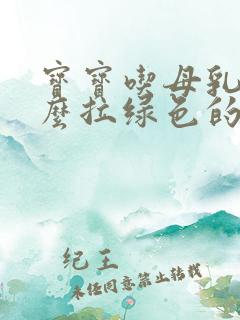 寶寶喫母乳
麽拉绿色的
纪王
未经同意禁止转载